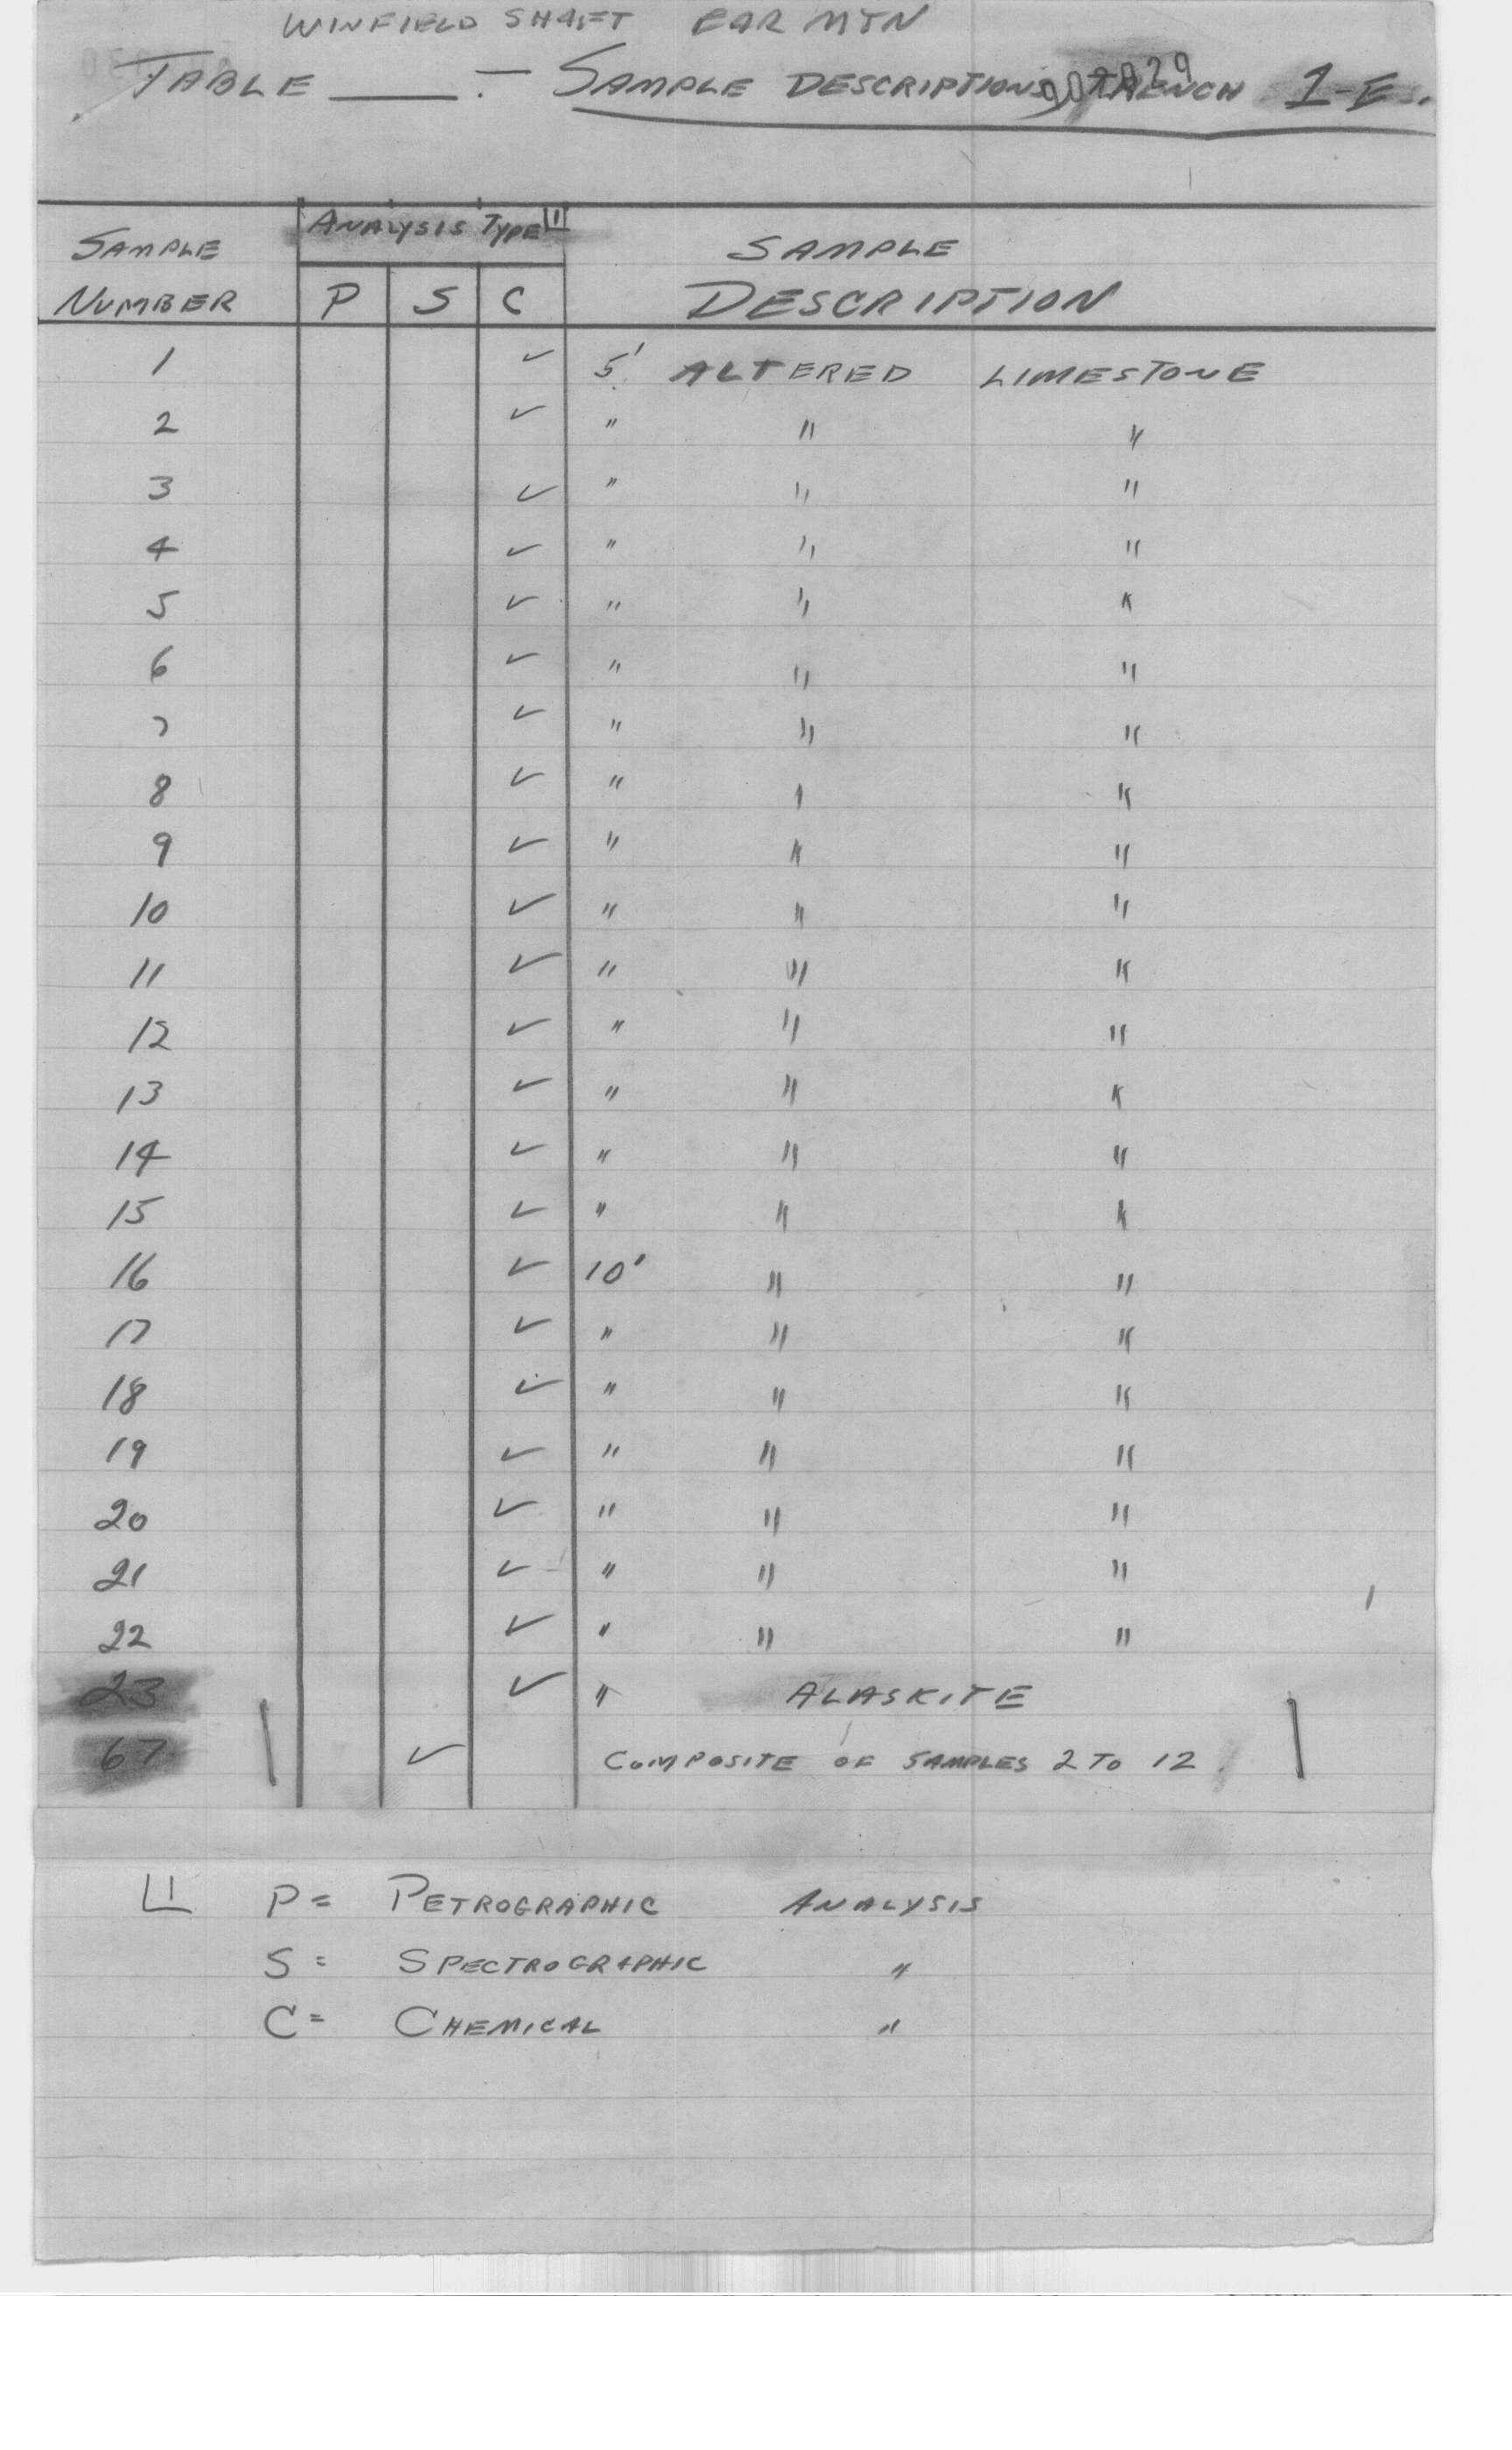 WINFIELD SHAFT EAR MTN
TABLE ____ . — SAMPLE DESCRIPTIONS TRENCH 1-E.
ANALYSIS TYPE 1
SAMPLE NUMBER P S C SAMPLE DESCRIPTION
1 ✓ 5' ALTERED LIMESTONE
2 ✓ " " "
3 ✓ " " "
4 ✓ " " "
5 ✓ " " "
6 ✓ " " "
7 ✓ " " "
8 ✓ " " "
9 ✓ " " "
10 ✓ " " "
11 ✓ " " "
12 ✓ " " "
13 ✓ " " "
14 ✓ " " "
15 ✓ " " "
16 ✓ 10' " "
17 ✓ " " "
18 ✓ " " "
19 ✓ " " "
20 ✓ " " "
21 ✓ " " "
22 ✓ " " "
23 ✓ " ALASKITE
67 ✓ COMPOSITE OF SAMPLES 2 TO 12
1 P = PETROGRAPHIC ANALYSIS
S = SPECTROGRAPHIC "
C = CHEMICAL "